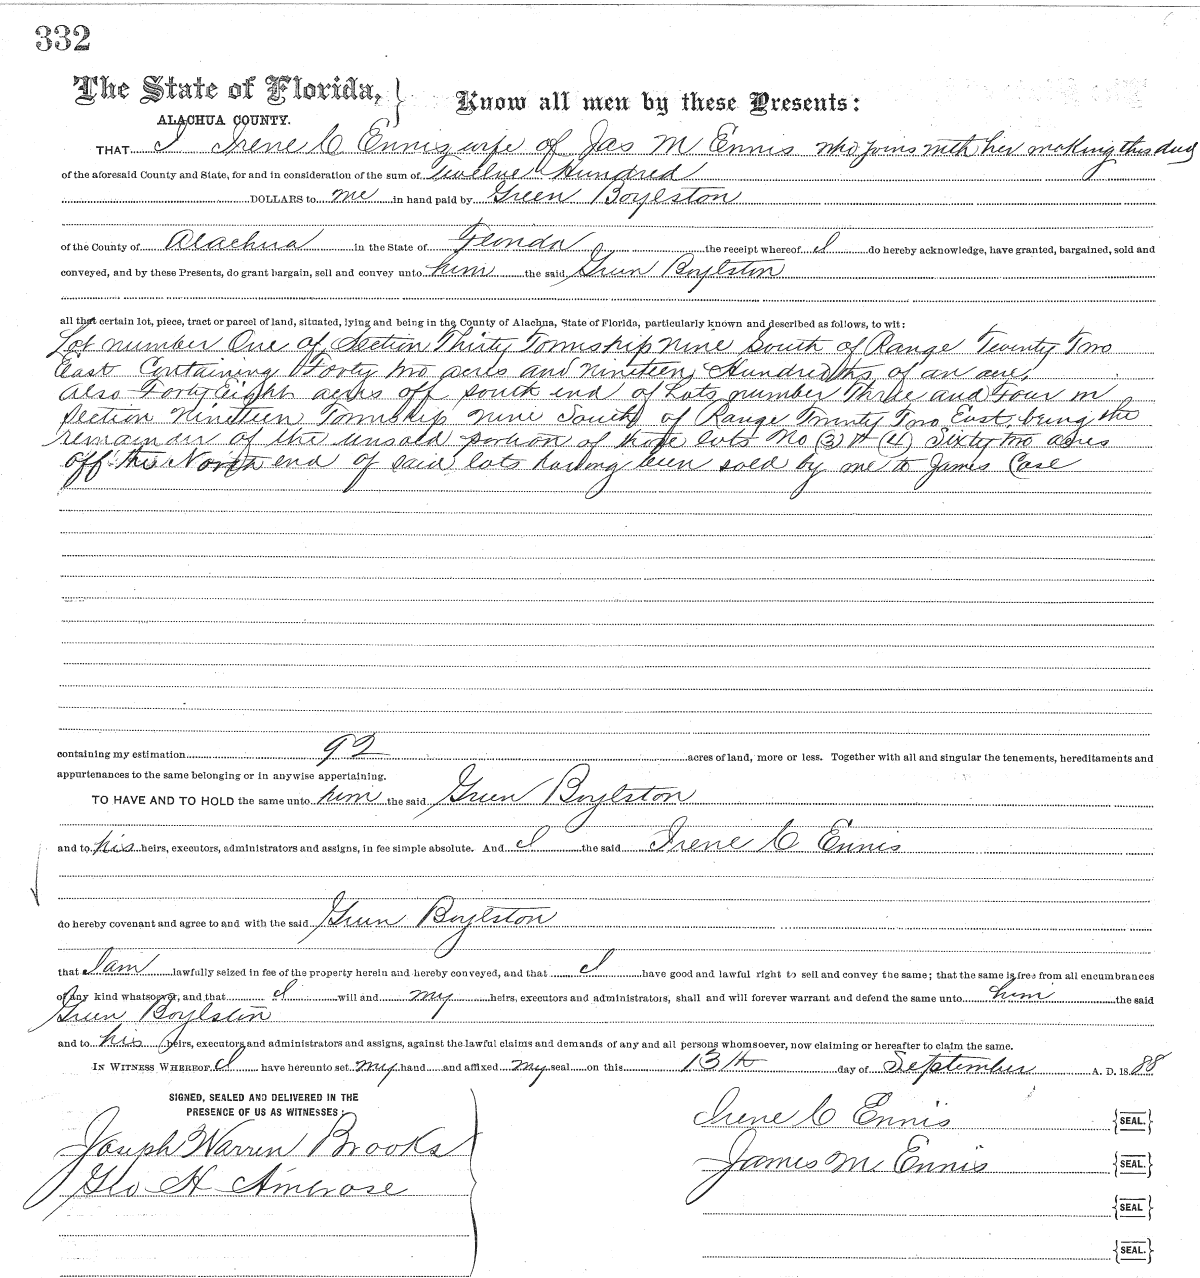 332
The State of Florida, } Know all men by these Presents:
ALACHUA COUNTY.
THAT I Irene C Ennis wife of Jas M Ennis who joins with her making this deed
of the aforesaid County and State, for and in consideration of the sum of Twelve Hundred
DOLLARS to me in hand paid by Green Boylston
of the County of Alachua in the State of Florida the receipt whereof I do hereby acknowledge, have granted, bargained, sold and
conveyed, and by these Presents, do grant bargain, sell and convey unto him the said Green Boylston
all that certain lot, piece, tract or parcel of land, situated, lying and being in the County of Alachua, State of Florida, particularly known and described as follows, to wit:
Lot number One of Section Thirty Township nine South of Range Twenty Two
East Containing Forty two acres and nineteen Hundredths of an acre.
Also Forty Eight acres off south end of Lots number Three and Four in
Section Nineteen Township nine South of Range Twenty Two East, being the
remainder of the unsold portion of those lots No (3) & (4) Sixty two acres
off the North end of said lots having been sold by me to James Case
containing my estimation 92 acres of land, more or less. Together with all and singular the tenements, hereditaments and
appurtenances to the same belonging or in anywise appertaining.
TO HAVE AND TO HOLD the same unto him the said Green Boylston
and to his heirs, executors, administrators and assigns, in fee simple absolute. And I the said Irene C Ennis
do hereby covenant and agree to and with the said Green Boylston
that I am lawfully seized in fee of the property herein and hereby conveyed, and that I have good and lawful right to sell and convey the same; that the same is free from all encumbrances
of any kind whatsoever, and that I will and my heirs, executors and administrators, shall and will forever warrant and defend the same unto him the said
Green Boylston
and to his heirs, executors and administrators and assigns, against the lawful claims and demands of any and all persons whomsoever, now claiming or hereafter to claim the same.
IN WITNESS WHEREOF I have hereunto set my hand and affixed my seal on this 13th day of September A. D. 1888
SIGNED, SEALED AND DELIVERED IN THE
PRESENCE OF US AS WITNESSES:
Joseph Warren Brooks
Geo H Ambrose
Irene C Ennis {SEAL.}
James M Ennis {SEAL.}
{SEAL.}
{SEAL.}